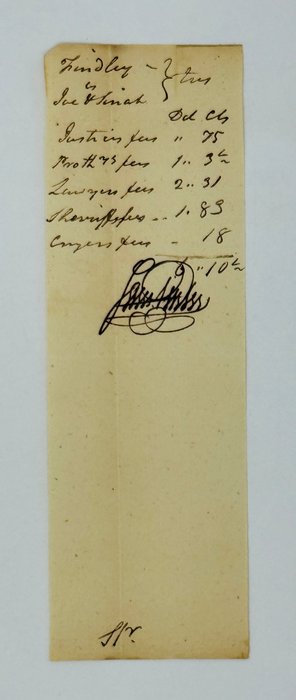 Findley - } tres
vs
Joe & Sinah
Dol Cts
Justices fees " 75
Proth ys fees 1 .. 3½
Lawyers fees 2 .. 31
Sheriffs fees .. 1 . 83
Cryers fees - 18
6 .. 10½